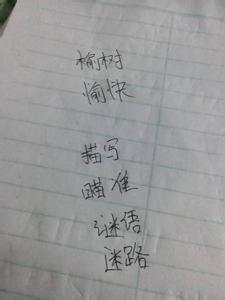 榆树
愉快
描写
瞄准
谜语
迷路